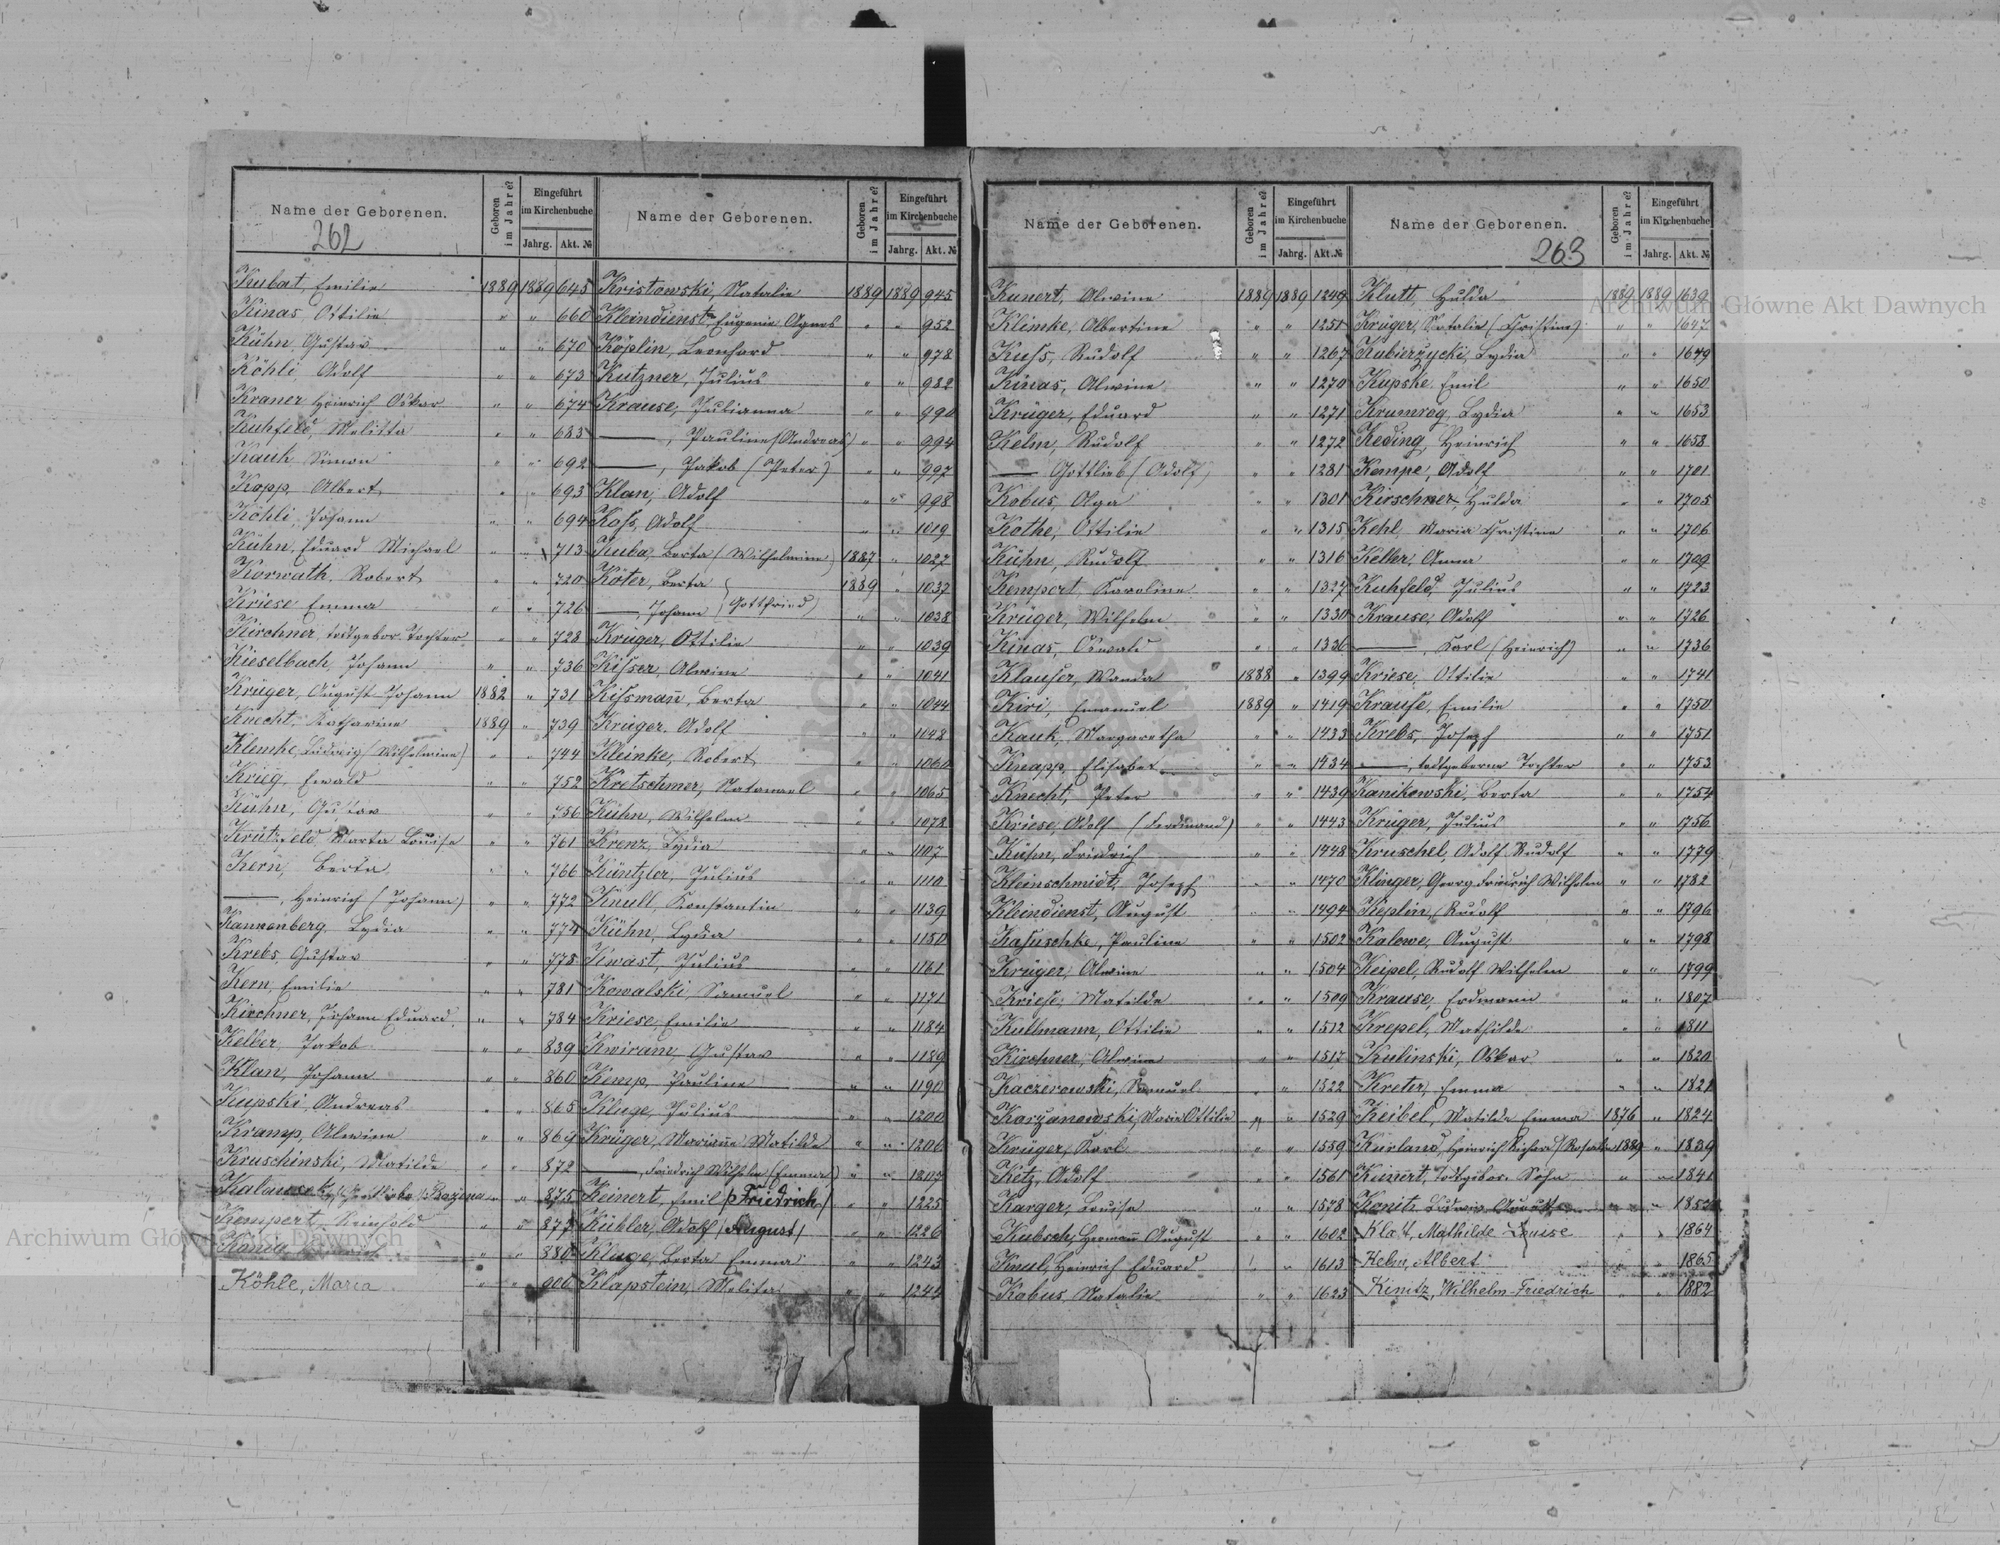 Name der Geborenen.
262
Geboren im Jahre?
Eingeführt im Kirchenbuche
Jahrg. Akt. №
Kubat, Emilie 1889 1889 645
Kinas Ottilie " " 660
Kühn, Gustav " " 670
Köhli Adolf " " 673
Kraner Heinrich Oskar " " 674
Kuhfeld, Melitta " " 683
Kauk Simon " " 692
Kopp Albert " " 693
Köhli, Johann " " 694
Kühn, Eduard Michael " " 713
Korwath, Robert " " 720
Kriese Emma " " 726
Kirchner, todtgebor. Tochter " " 728
Kieselbach, Johann " " 736
Krüger, August Johann 1882 " 731
Knecht, Katharine 1889 " 739
Klemke, Ludwig (Wilhelmine) " " 744
Krieg, Ewald " " 752
Kühn, Gustav " " 756
Marta Louise " " 761
Kern, Berta " " 766
——, Heinrich (Johann) " " 772
Kannenberg, Lydia " " 774
Krebs, Gustav " " 778
Kern, Emilie " " 781
Kirchner, Johann Eduard " " 784
Kelber, Jakob " " 839
Klan, Johann " " 860
Kupski, Andreas " " 865
Kramp, Alwine " " 869
Kruschinski, Matilde " " 872
" " 875
Kempert, Reinhold " " 877
" " 880
Köhle, Maria " " 900
Name der Geborenen.
Geboren im Jahre?
Eingeführt im Kirchenbuche
Jahrg. Akt. №
Kristowski, Natalie 1889 1889 945
Kleindienst, Eugenie Agnes " " 952
Köplin, Leonhard " " 978
Kutzner, Julius " " 982
Krause, Julianna " " 990
——, Pauline (Andreas) " " 994
——, Jakob (Peter) " " 997
Klan, Adolf " " 998
Koss, Adolf " " 1019
Kuba, Berta (Wilhelmine) 1887 " 1027
Köter, Berta 1889 " 1037
——, Johann (Gottfried) " " 1038
Krüger, Ottilie " " 1039
Kisser, Alwine " " 1041
Kissmañ, Berta " " 1044
Krüger, Adolf " " 1148
Kleinke, Robert " " 1060
Kretschmer, Natanael " " 1065
Kühn, Wilhelm " " 1078
Krenz, Lydia " " 1107
Küntzler, Julius " " 1110
Knull, Konstantin " " 1139
Kühn, Lydia " " 1150
Kwast, Julius " " 1161
Kowalski, Samuel " " 1171
Kriese, Emilie " " 1184
Kwiram, Gustav " " 1189
Kemp, Pauline " " 1190
Kluge, Julius " " 1200
Krüger, Mariane Matilde " " 1206
——, Friedrich Wilhelm (Emma) " " 1207
Keinert, Emil (Friedrich) " " 1225
Kübler, Adolf (August) " " 1226
Kluge, Berta Emma " " 1243
Klapstein, Melita " " 1244
Name der Geborenen.
Geboren im Jahre?
Eingeführt im Kirchenbuche
Jahrg. Akt. №
Kunert, Alwine 1889 1889 1249
Klimke, Albertine " " 1251
Kuss, Rudolf " " 1267
Kinas, Alwine " " 1270
Krüger, Eduard " " 1271
Kelm, Rudolf " " 1272
—— Gottlieb (Adolf) " " 1281
Kobus, Olga " " 1301
Kothe, Ottilie " " 1315
Kühn, Rudolf " " 1316
Kempert, Karoline " " 1327
Krüger, Wilhelm " " 1330
Kinas, Oswald " " 1336
Klauser, Wanda 1888 " 1399
Kiri, Emanuel 1889 " 1419
Kauk, Margaretha " " 1433
Knapp, Elisabet " " 1434
Knecht, Peter " " 1439
Kriese, Adolf (Ferdinand) " " 1443
Kühn, Friedrich " " 1448
Kleinschmidt, Joseph " " 1470
Kleindienst, August " " 1494
Kasuschke, Pauline " " 1502
Krüger, Alwine " " 1504
Kriese, Matilde " " 1509
Kullmann, Ottilie " " 1512
Kirchner, Alwine " " 1517
Kaczerowski, Samuel " " 1522
Karzanowski, Marie Ottilie " " 1529
Krüger, Karl " " 1559
Kitz, Adolf " " 1561
Karger, Louise " " 1578
Kubsch, Herman August " " 1602
Knul, Heinrich Eduard " " 1613
Kobus, Natalie " " 1623
Name der Geborenen.
263
Geboren im Jahre?
Eingeführt im Kirchenbuche
Jahrg. Akt. №
Klutt, Hulda 1889 1889 1639
Krüger, Natalie (Christine) " " 1647
Kubierzycki, Lydia " " 1649
Kupske Emil " " 1650
Krumrey, Lydia " " 1653
Keding, Heinrich " " 1658
Kempe, Adolf " " 1701
Kirschner, Hulda " " 1705
Kehl, Maria Christine " " 1706
Keller, Anna " " 1709
Kuhfeld, Julius " " 1723
Krause, Adolf " " 1726
——, Karl (Heinrich) " " 1736
Kriese, Ottilie " " 1741
Krause, Emilie " " 1750
Krebs, Joseph " " 1751
——, todtgeborne Tochter " " 1753
Kanikowski, Berta " " 1754
Krüger, Julius " " 1756
Kruschel, Adolf Rudolf " " 1779
Klinger, Georg Friedrich Wilhelm " " 1782
Köplin, Rudolf " " 1796
Kalewe, August " " 1798
Keipel, Rudolf Wilhelm " " 1799
Krause, Erdmann " " 1807
Krepel, Mathilde " " 1811
Kulinski, Oskar " " 1820
Kreter, Emma " " 1821
Keibel, Matilde Emma 1876 " 1824
Kurland, Heinrich Richard (Rosalie) 1889 " 1839
Kunert, todtgebor. Sohn " " 1841
Konitz, Ludwig " " 1850
Klatt, Mathilde Louise " " 1864
Kelm, Albert " " 1865
Kinitz, Wilhelm-Friedrich " " 1882
Archiwum Główne Akt Dawnych
Archiwum Główne Akt Dawnych